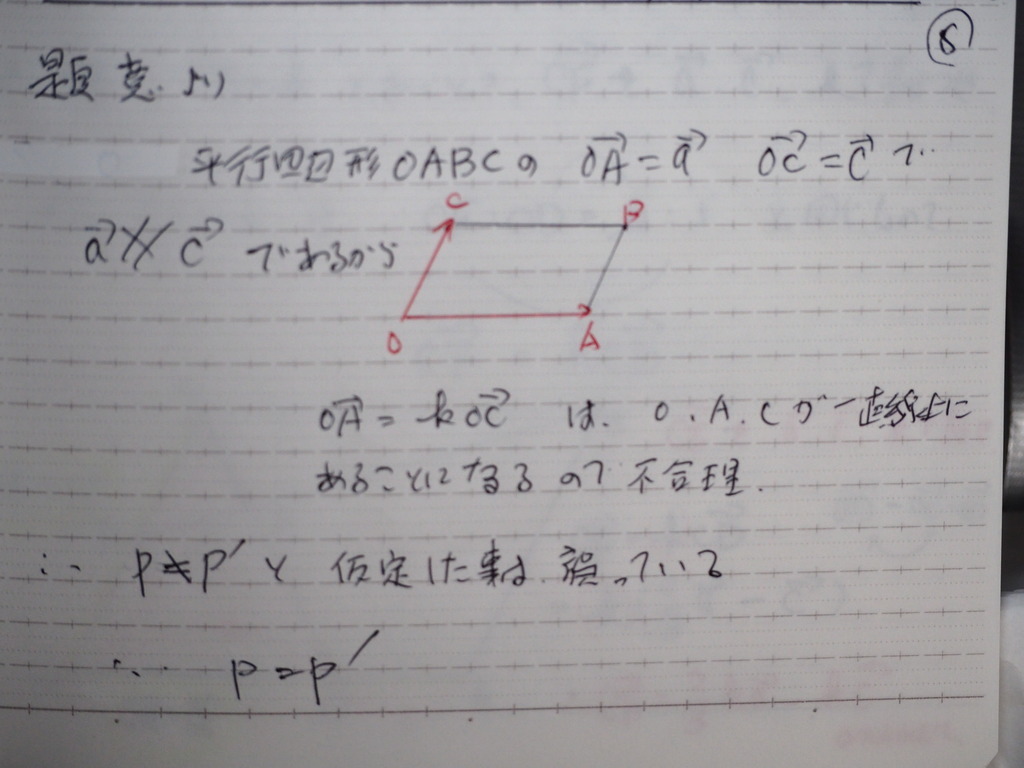 ⑧
題意より
平行四辺形OABCの $\overrightarrow{OA}=\vec{a}$ $\overrightarrow{OC}=\vec{c}$ で
$\vec{a}∦\vec{c}$ であるから
C B
O A
$\overrightarrow{OA}=k\overrightarrow{OC}$ は、O、A、Cが一直線上に
あることになるので不合理.
∴ P≠P′と仮定した事は、誤っている
∴ P=P′